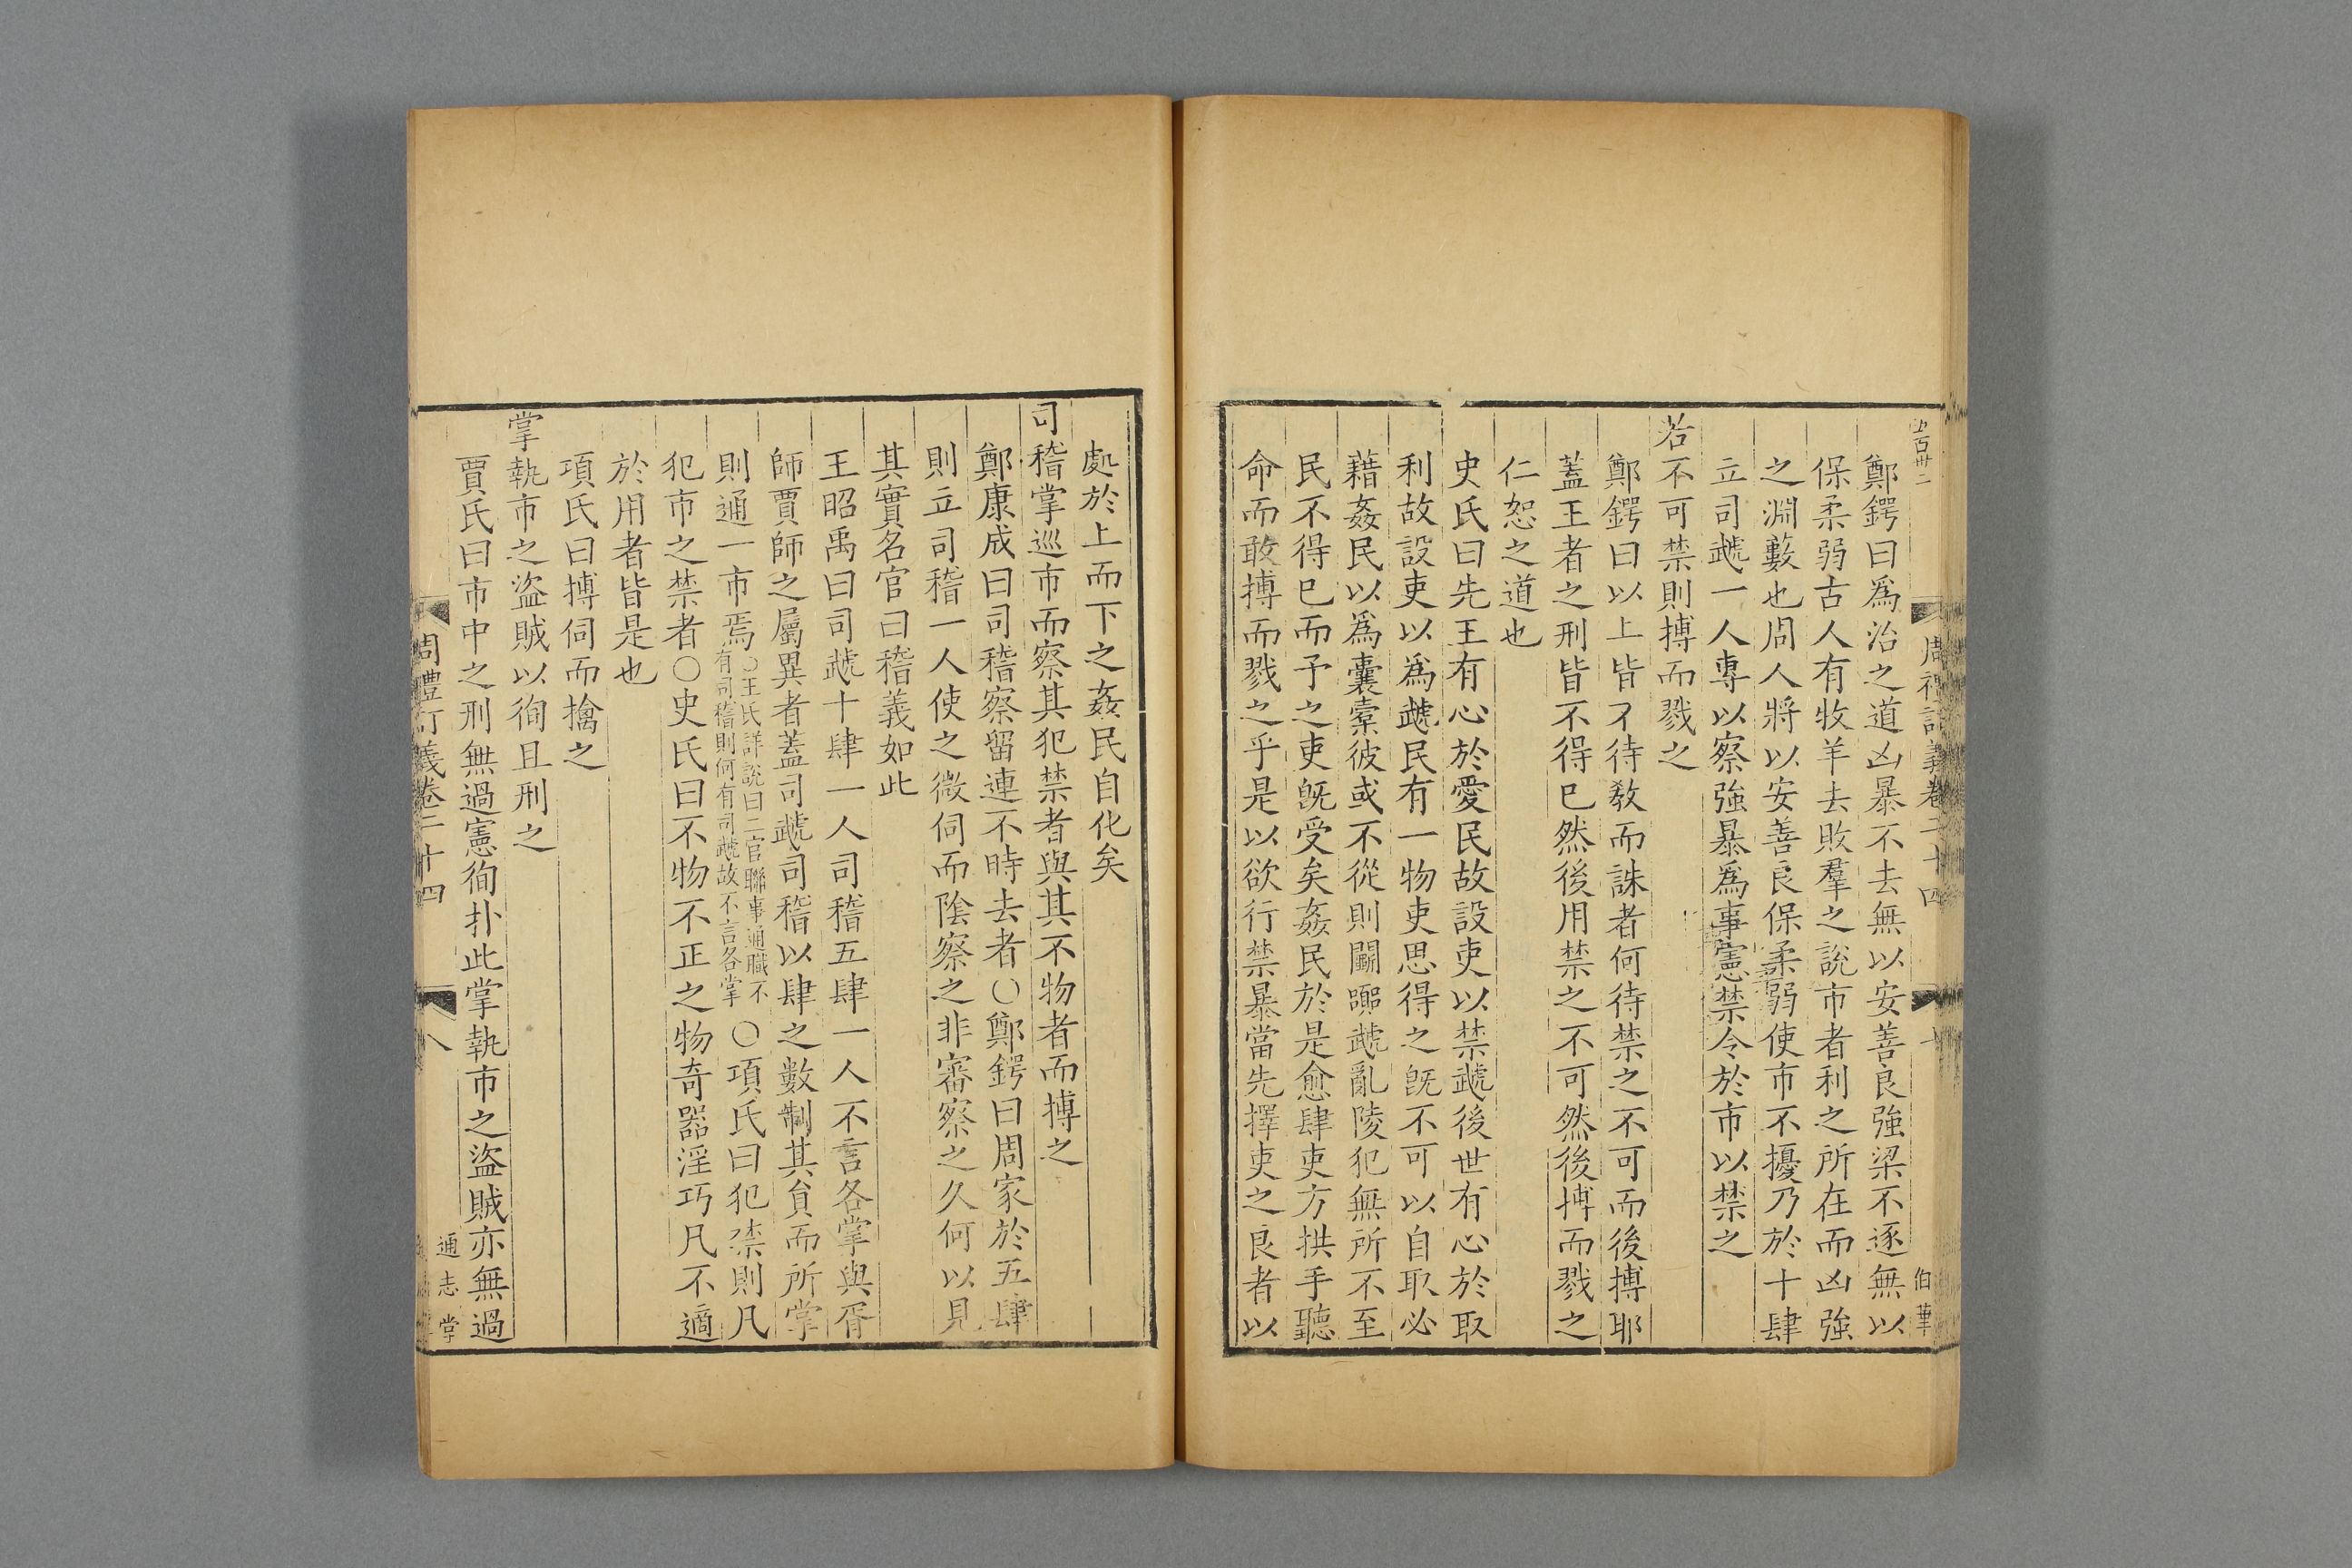 五百卅二
周禮訂義卷二十四
伯華
鄭鍔曰爲治之道凶暴不去無以安善良強梁不逐無以
保柔弱古人有牧羊去敗羣之說市者利之所在而凶強
之淵藪也周人將以安善良保柔弱使市不擾乃於十肆
立司虣一人專以察強暴爲事憲禁令於市以禁之
若不可禁則搏而戮之
鄭鍔曰以上皆不待敎而誅者何待禁之不可而後搏耶
蓋王者之刑皆不得已然後用禁之不可然後搏而戮之
仁恕之道也
史氏曰先王有心於愛民故設吏以禁虣後世有心於取
利故設吏以爲虣民有一物吏思得之旣不可以自取必
藉姦民以爲囊橐彼或不從則鬭嚻虣亂陵犯無所不至
民不得已而予之吏旣受矣姦民於是愈肆吏方拱手聽
命而敢搏而戮之乎是以欲行禁暴當先擇吏之良者以
處於上而下之姦民自化矣
司稽掌巡市而察其犯禁者與其不物者而搏之
鄭康成曰司稽察留連不時去者○鄭鍔曰周家於五肆
則立司稽一人使之微伺而陰察之非審察之久何以見
其實名官曰稽義如此
王昭禹曰司虣十肆一人司稽五肆一人不言各掌與胥
師賈師之屬異者蓋司虣司稽以肆之數制其員而所掌
則通一市焉○王氏詳說曰二官聯事通職不有司稽則何有司虣故不言各掌○項氏曰犯禁則凡
犯市之禁者○史氏曰不物不正之物奇器淫巧凡不適
於用者皆是也
項氏曰搏伺而擒之
掌執市之盜賊以徇且刑之
賈氏曰市中之刑無過憲徇扑此掌執市之盜賊亦無過
周禮訂義卷二十四
八
通志堂